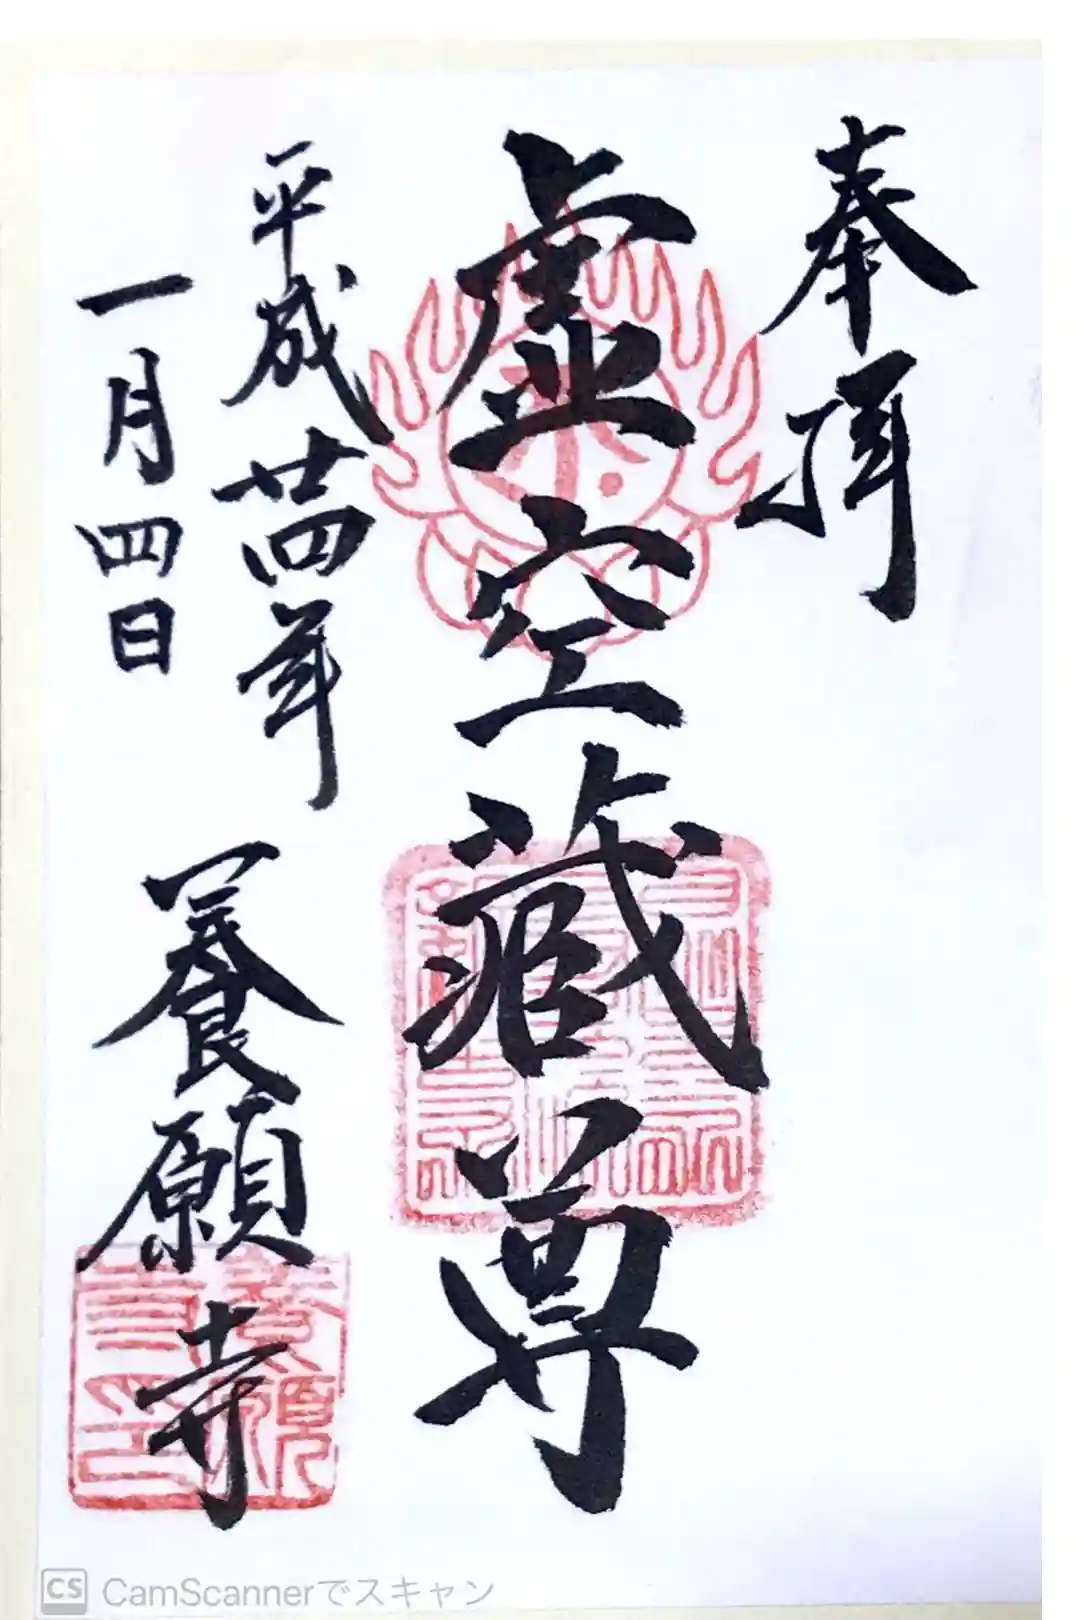 奉拝
虚空蔵尊
平成廿四年
一月四日
養願寺
CS CamScannerでスキャン